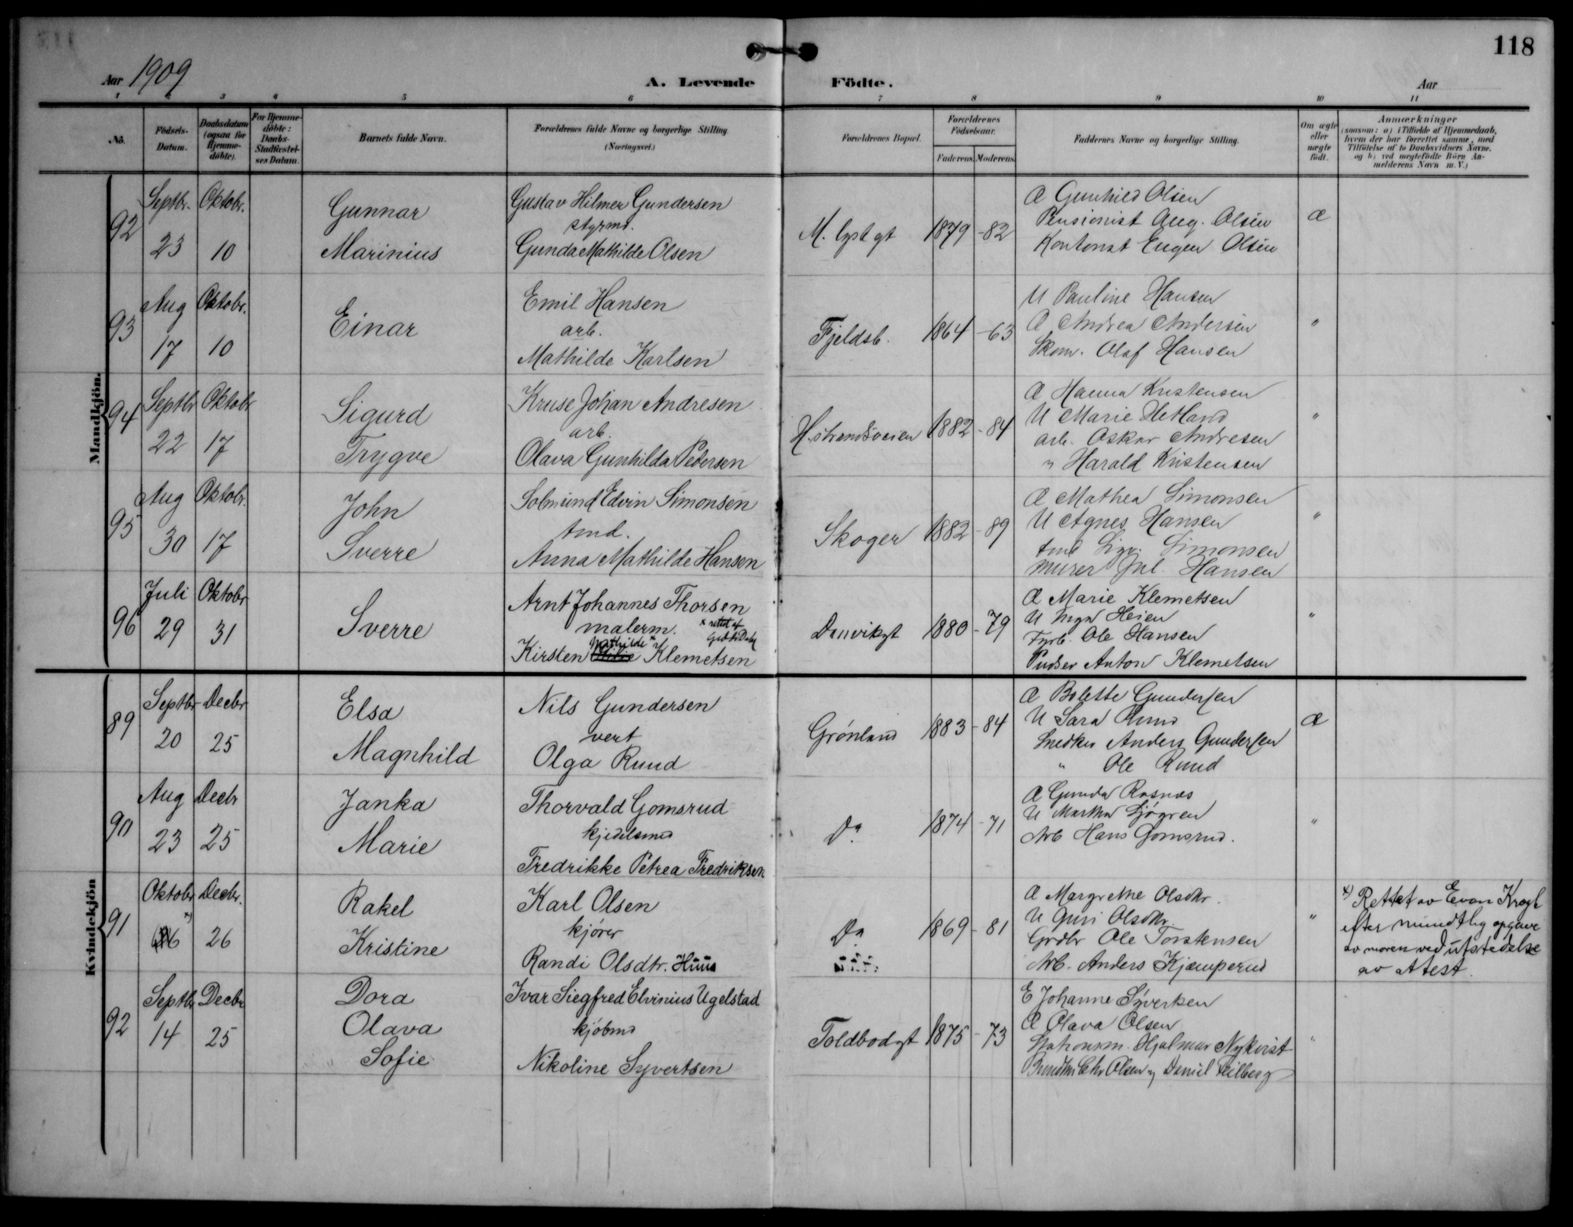 118
Aar 1909
A. Levende Födte.
Aar
1 2 3 4 5 6 7 8 9 10 11
No.
Fødsels-Datum.
Daabsdatum (ogsaa for Hjemme-døbte).
For Hjemme-døbte: Daabs-Stadfæstel-ses Datum.
Barnets fulde Navn.
Forældrenes fulde Navne og borgerlige Stilling (Næringsvei.)
Forældrenes Bopæl.
Forældrenes Fødselsaar.
Faderens. Moderens.
Faddernes Navne og borgerlige Stilling.
Om ægte eller uægte født.
Anmærkninger
(saasom: a) i Tilfælde af Hjemmedaab, hvem der har forrettet samme, med Tilføielse af to Daabsvidners Navne. og b) ved uægtefødte Børn An-melderens Navn m. V.)
Mandkjön.
92 Septbr. 23 Oktobr. 10
Gunnar
Marinius
Gustav Hilmer Gundersen
styrmd.
Gunda Mathilde Olsen
M. lystgt 1879 -82
Æ Gunhild Olsen
Pensionist Aug. Olsen
Kontorist Eugen Olsen
Æ
93 Aug 17 Oktobr. 10
Einar
Emil Hansen
arb.
Mathilde Karlsen
Fjeldsb. 1864 -63
U Pauline Hansen
Æ Andrea Andersen
Skom. Olaf Hansen
"
94 Septbr 22 Oktobr 17
Sigurd
Trygve
Kruse Johan Andresen
arb.
Olava Gunhilda Pedersen
H.strandsveien 1882 -84
Æ Hanna Kristensen
U Marie Hetland
arb. Oskar Andresen
" Harald Kristensen
"
95 Aug 30 Oktobr. 17
John
Sverre
Solmund Edvin Simonsen
tmd.
Anna Mathilde Hansen
Skoger 1882 -89
Æ Mathea Simonsen
U Agnes Hansen
tmd Sigv. Simonsen
murer Jul. Hansen
"
96 Juli 29 Oktobr 31
Sverre
Arnt Johannes Thorsen
malerm. x rettet af
Kirsten Mathilde x Klemetsen
Danvikgt 1880 -79
Æ Marie Klemetsen
U Inga Heien
Fyrb. Ole Hansen
Pudser Anton Klemetsen
"
Kvindekjön
89 Septbr 20 Decbr 25
Elsa
Magnhild
Nils Gundersen
vert
Olga Ruud
Grønland 1883 -84
Æ Bolette Gundersen
U Sara Ruud
Snedker Anders Gundersen
" Ole Ruud
Æ
90 Aug 23 Decbr 25
Janka
Marie
Thorvald Gomsrud
kjedelsmed
Fredrikke Petrea Fredriksen
Do 1874 -71
Æ Gunda Rosnæs
U Martha Sjøgren
Arb Hans Gomsrud.
"
91 Oktobr 6 x) Decbr. 26
Rakel
Kristine
Karl Olsen
kjører
Randi Olsdtr. Huus
Do 1869 -81
Æ Margrethe Olsdtr.
U Guri Olsdtr.
Grdbr Ole Torstensen
Arb. Anders Kjæmperud
"
x) Rettet av Evan Krogh
efter mundtlig opgave
av moren ved utstedelse
av attest.
92 Septbr 14 Decbr 25
Dora
Olava
Sofie
Ivar Siegfred Elvinius Ugelstad
kjøbmd
Nikoline Syvertsen
Toldbodgt 1875 -73
E Johanne Syvertsen
Æ Olava Olsen
Stationsm. Hjalmar Nykvist
Chr Olsen og Daniel Feilberg
"